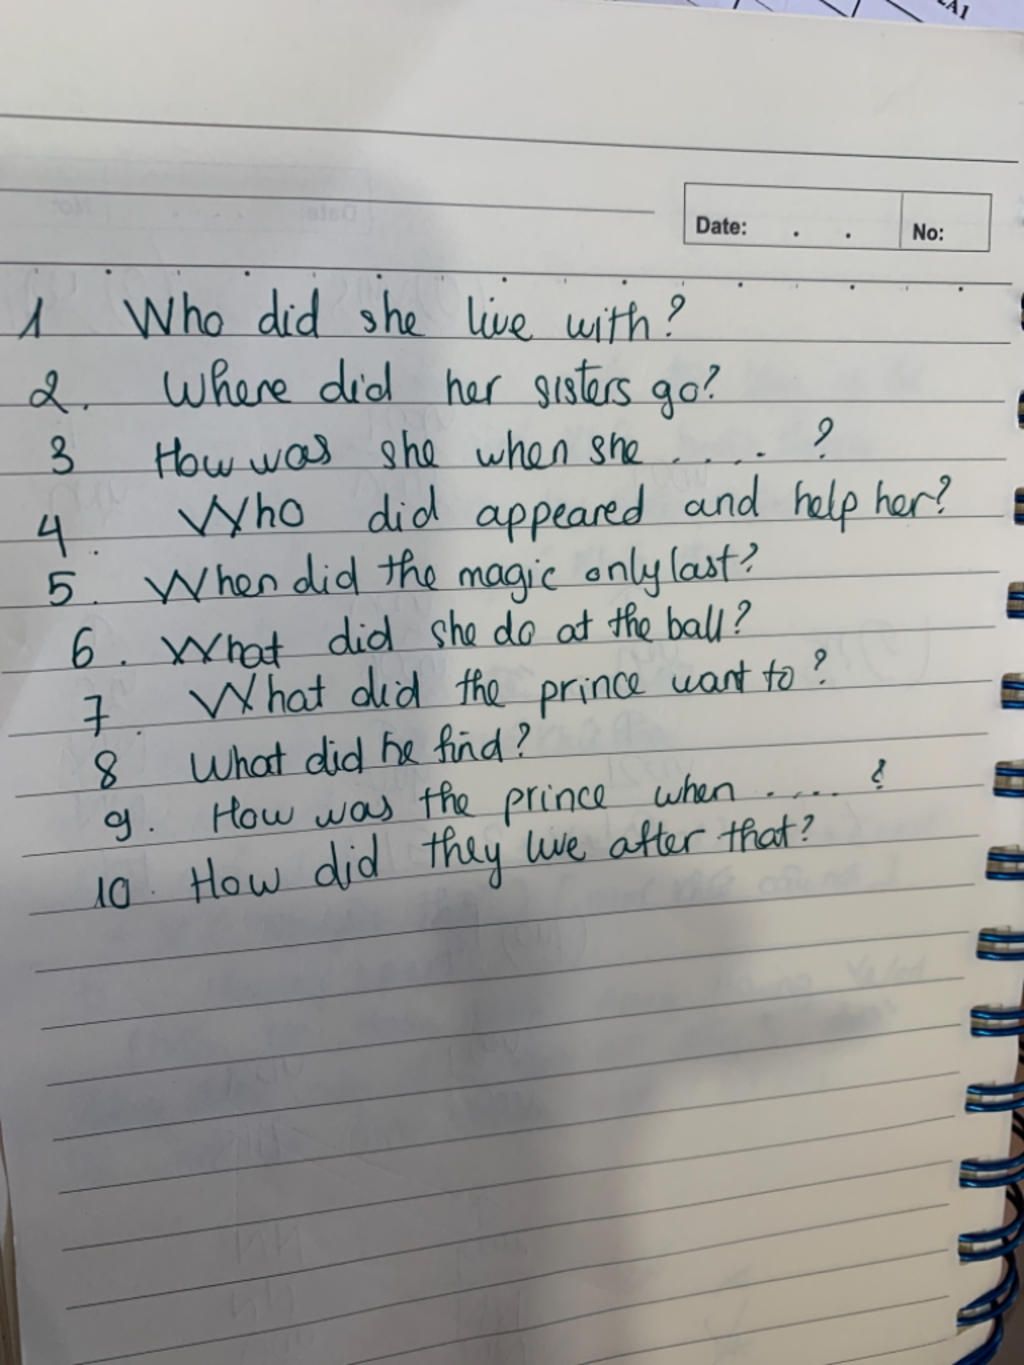 ZA1
Date: . . No:
1 Who did she live with?
2. Where did her sisters go?
3 How was she when she .... ?
4. Who did appeared and help her?
5. When did the magic only last?
6. What did she do at the ball?
7. What did the prince want to?
8 What did he find?
9. How was the prince when .... ?
10. How did they live after that?